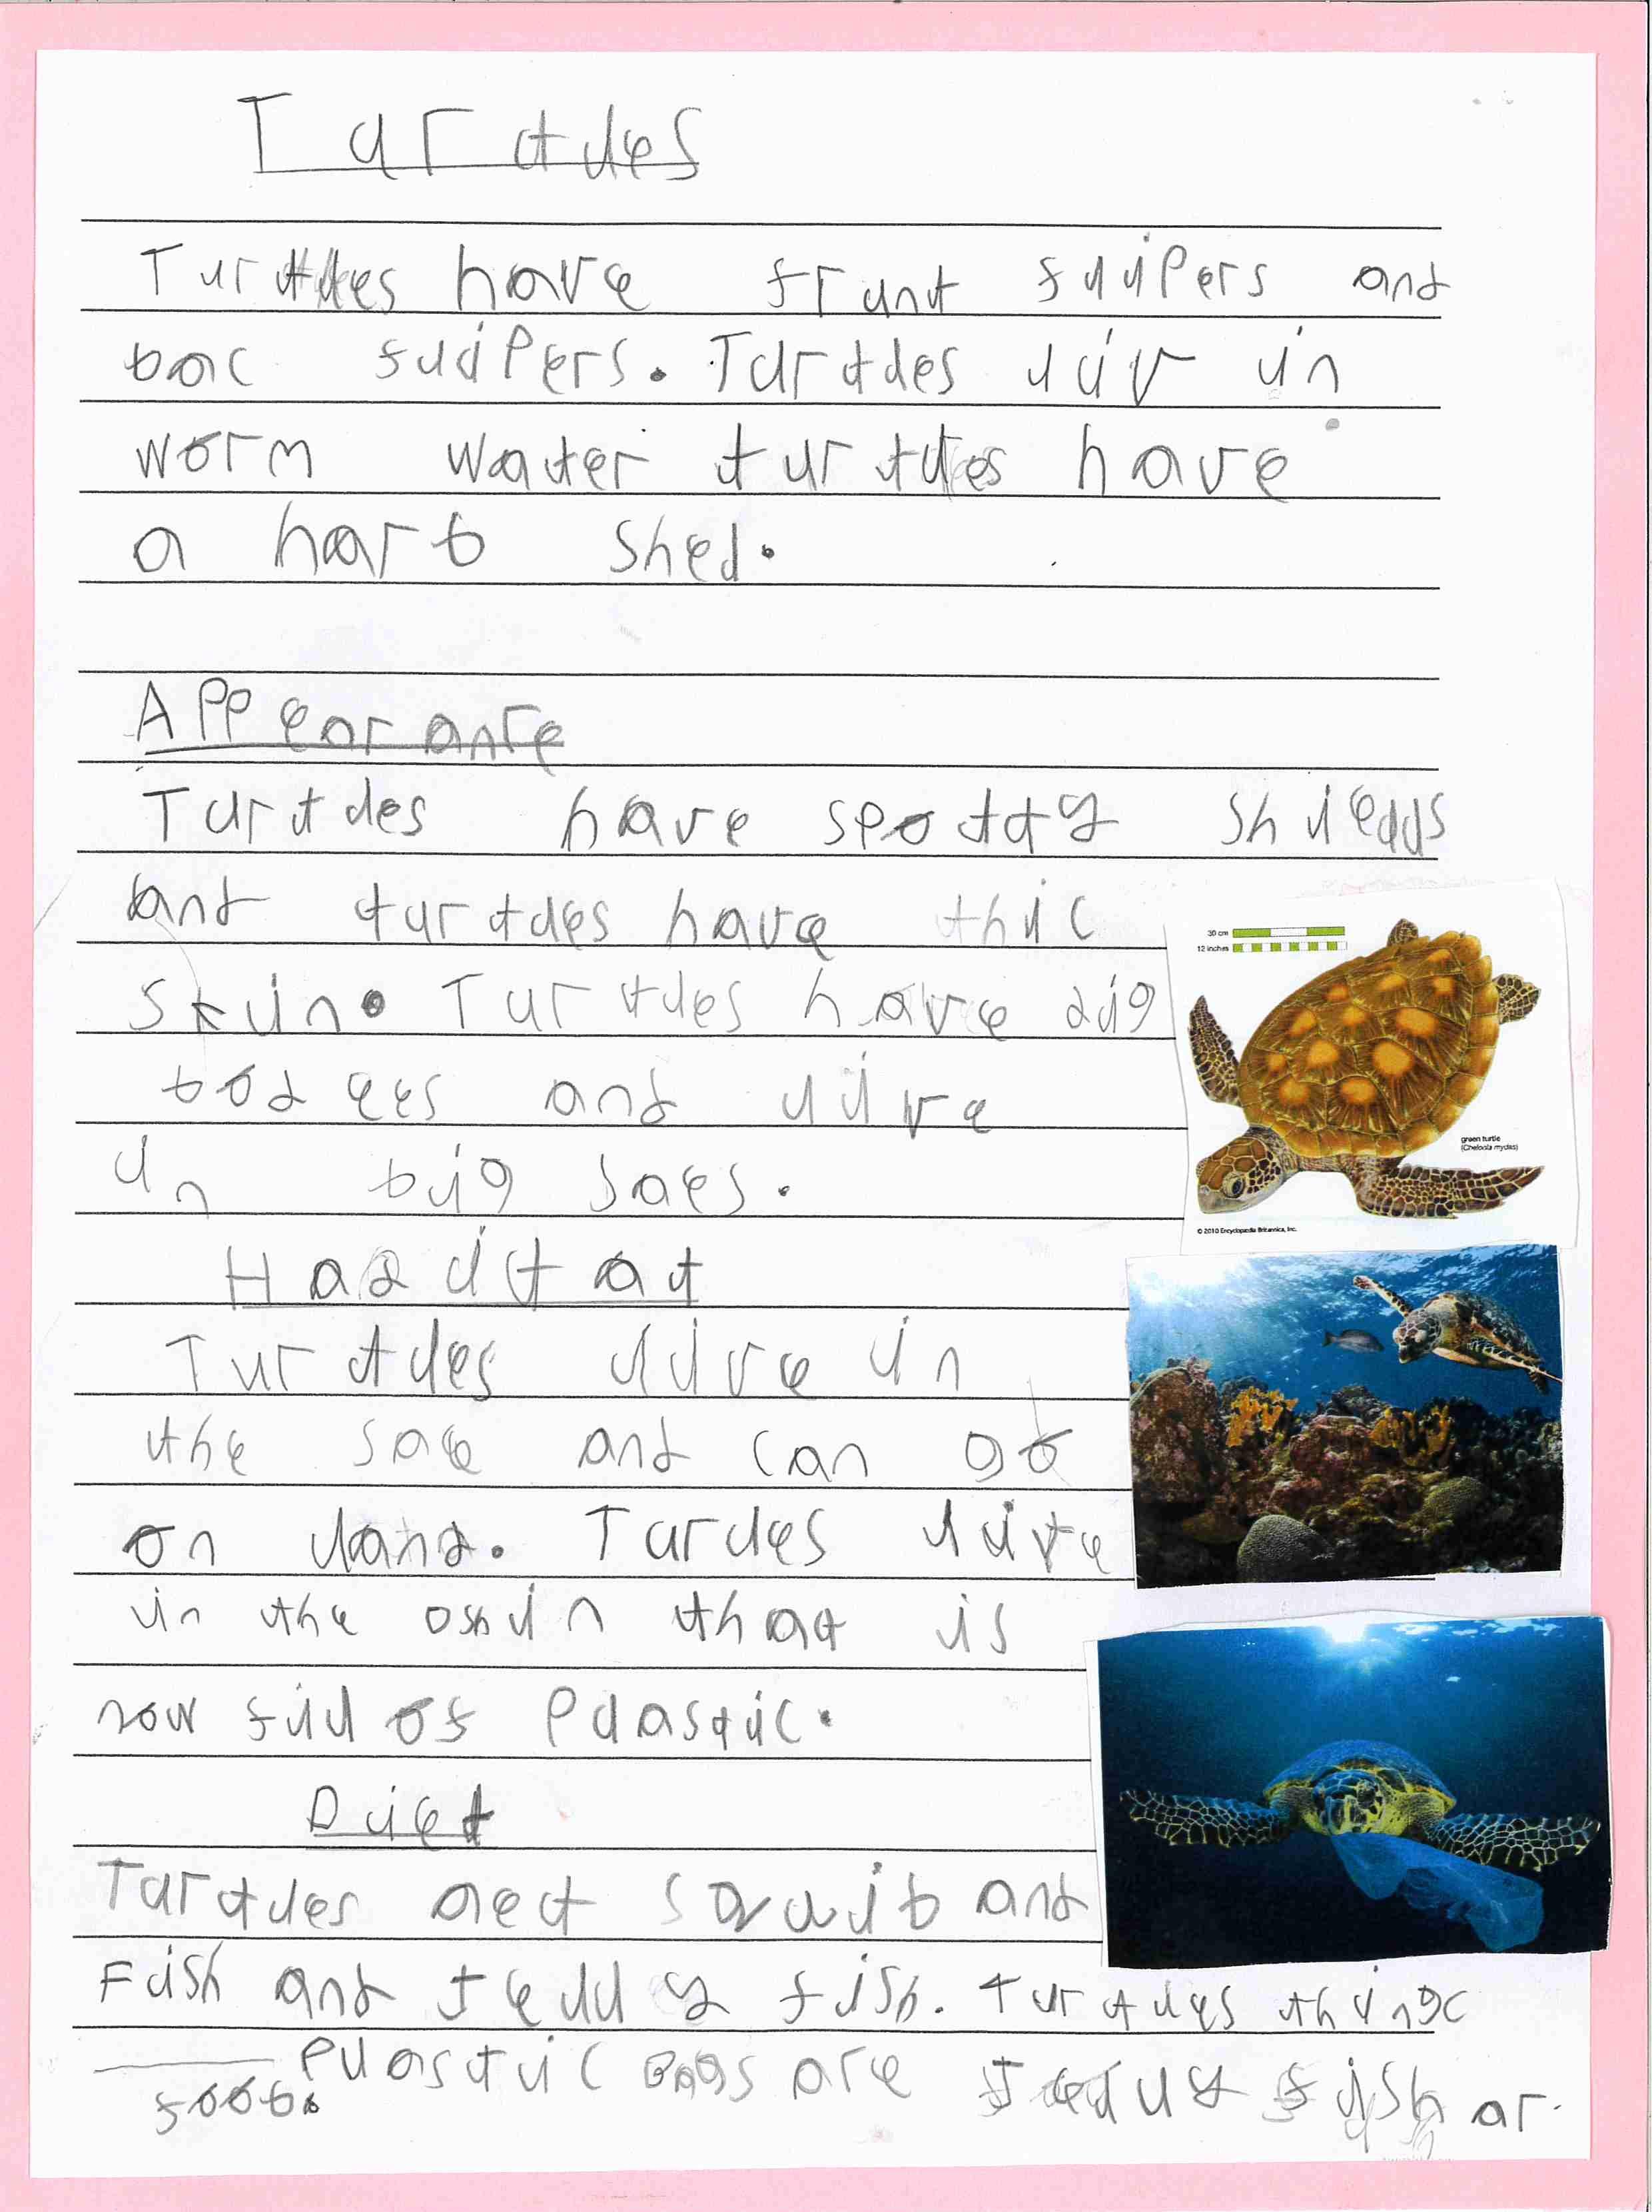 Turtles
Turttles have frunt flipers and
bac flipers. Turtles liv in
worm water turtles have
a harb shel.
Appearance
Turtles have spotty shiells
and turtles have thic
skin. Turtles have big
bodees and live
in big saes.
30 cm
12 inches
green turtle
(Chelonia mydas)
© 2010 Encyclopaedia Britannica, Inc.
Habitat
Turtles live in
the sae and can go
on land. Turles live
in the oshin that is
now fill of Plastic.
Diet
Turtles aet squib and
Fish and Jelly fish. Turtles thingc
Plastic bags are Jelly fish ar
foob.